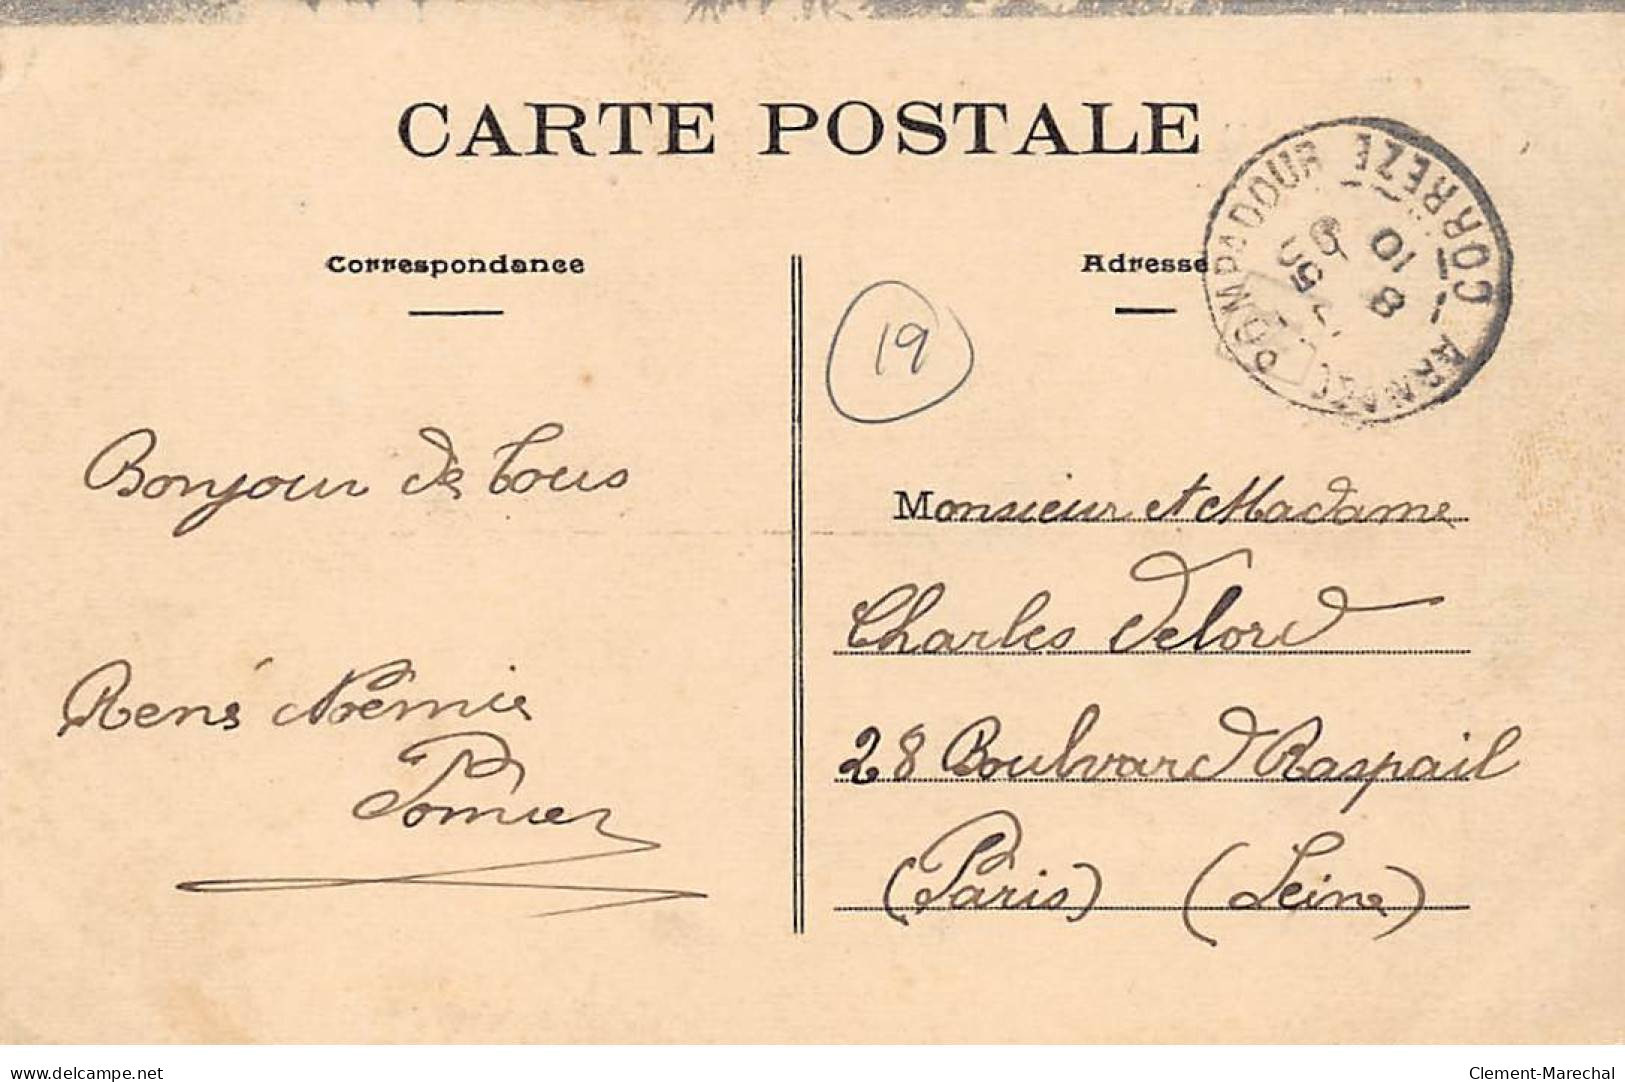 CARTE POSTALE
Correspondance
Adresse
19
POMPADOUR CORRÈZE
8
10
Bonjour de tous
René Noémie
Pomier
Monsieur et Madame
Charles Delord
28 Boulvard Raspail
(Paris) (Seine)
delcampe.net
Clement-Marechal